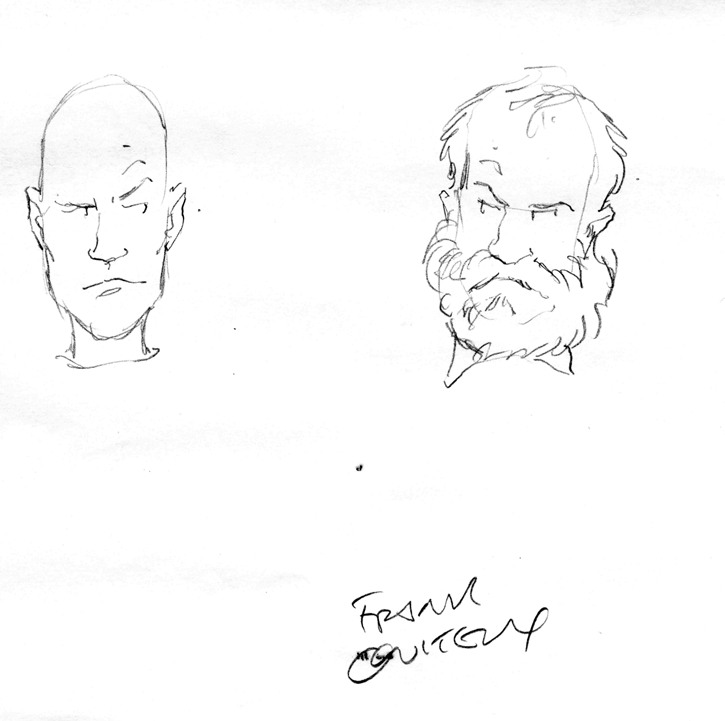 FRANK
QUITELY